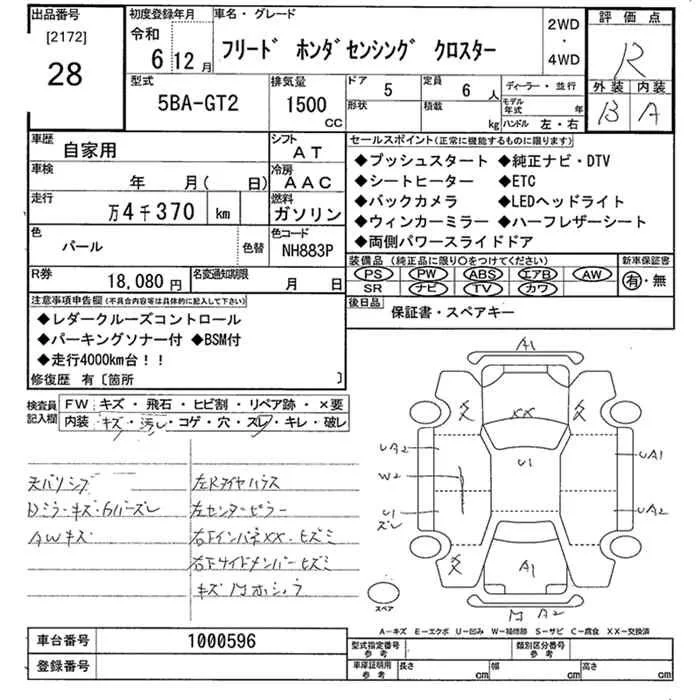 出品番号
[2172]
28
初度登録年月
令和
6 12月
車名・グレード
フリード ホンダセンシング クロスター
2WD
・
4WD
評価点
R
外装 内装
B A
型式
5BA-GT2
排気量
1500
CC
ドア
5
形状
定員
6 人
積載
kg
ディーラー・並行
モデル年式 年
ハンドル 左・右
車歴
自家用
シフト
AT
車検
年 月( 日)
冷房
AAC
走行
万4千370 km
燃料
ガソリン
色
パール
色替
色コード
NH883P
R券
18,080 円
名変通知期限
月 日
セールスポイント(正常に機能するものに限ります)
◆プッシュスタート ◆純正ナビ・DTV
◆シートヒーター ◆ETC
◆バックカメラ ◆LEDヘッドライト
◆ウィンカーミラー ◆ハーフレザーシート
◆両側パワースライドドア
装備品(純正品に限り○をつけてください)
PS PW ABS エアB AW
SR ナビ TV カワ
新車保証書
有・無
後日品
保証書・スペアキー
注意事項申告欄(不具合内容等は具体的に記入して下さい)
◆レダークルーズコントロール
◆パーキングソナー付 ◆BSM付
◆走行4000km台!!
修復歴 有〔箇所 〕
検査員記入欄
FW キズ・飛石・ヒビ割・リペア跡・×要
内装 キズ・汚レ・コゲ・穴・スレ・キレ・破レ
AWキズ
左センターピラー
右下インパネXX・ヒズミ
右下サイドメンバーヒズミ
A1
XX
U1
UA2
W2
U1
スレ
UA1
UA2
A1
A2
スペア
A-キズ E-エクボ U-凹み W-補修跡 S-サビ C-腐食 XX-交換済
車台番号
1000596
登録番号
型式指定番号
参考
類別区分番号
参考
車庫証明用
参考
長さ cm
幅 cm
高さ cm